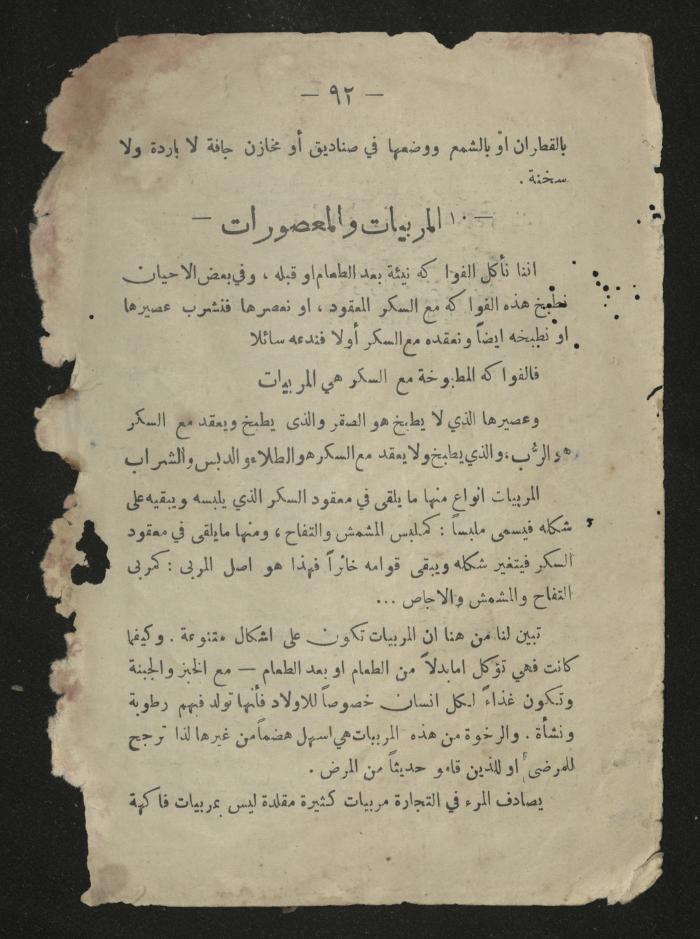 — ٩٢ —
بالقطران او بالشمع ووضعها في صناديق أو مخازن جافة لا باردة ولا
سخنة .
— ١٠ المربيات والمعصورات —
اننا نأكل الفواكه نيئة بعد الطعام او قبله ، وفي بعض الاحيان
نطبخ هذه الفواكه مع السكر المعقود ، او نعصرها فنشرب عصيرها
او نطبخه ايضاً ونعقده مع السكر أولا فندعه سائلا
فالفواكه المطبوخة مع السكر هي المربيات
وعصيرها الذي لا يطبخ هو الصقر والذى يطبخ ويعقد مع السكر
هو الرُب ، والذي يطبخ ولا يعقد مع السكر هو الطلاء والدبس والشراب
المربيات انواع منها ما يلقى في معقود السكر الذي يلبسه ويبقيه على
شكله فيسمى ملبساً : كملبس المشمش والتفاح ، ومنها ما يلقى في معقود
السكر فيتغير شكله ويبقى قوامه خائراً فهذا هو اصل المربى : كمربى
التفاح والمشمش والاجاص ...
تبين لنا من هنا ان المربيات تكون على اشكال متنوعة . وكيفما
كانت فهي تؤكل اما بدلاً من الطعام او بعد الطعام — مع الخبز والجبنة
وتكون غذاءً لكل انسان خصوصاً للاولاد فأنها تولد فيهم رطوبة
ونشأة . والرخوة من هذه المربيات هي اسهل هضماً من غيرها لذا ترجح
للمرضى او للذين قامو حديثاً من المرض .
يصادف المرء في التجارة مربيات كثيرة مقلدة ليس بمربيات فاكهة